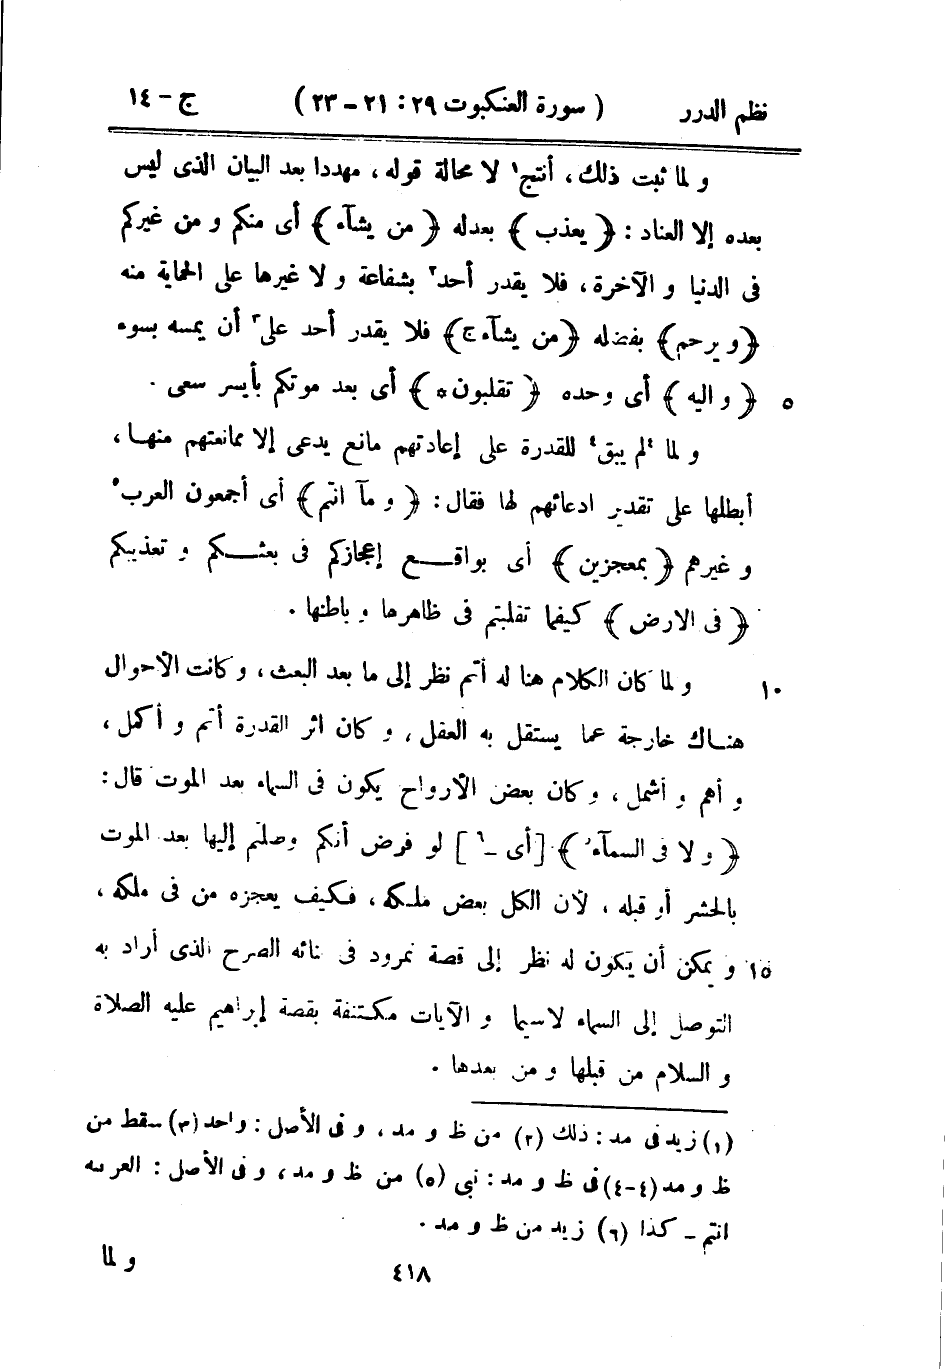 نظم الدرر ( سورة العنكبوت ٢٩ : ٢١ – ٢٣ ) ج – ١٤
و لما ثبت ذلك، أنتج١ لا محالة قوله، مهددا بعد البيان الذى ليس
بعده إلا العناد : ﴿ يعذب ﴾ بعدله ﴿ من يشآء ﴾ أى منكم و من غيركم
فى الدنيا و الآخرة، فلا يقدر أحد٢ بشفاعة و لا غيرها على الحماية منه
﴿ و يرحم ﴾ بفضله ﴿ من يشآء ج ﴾ فلا يقدر أحد على٣ أن يمسه بسوء
٥ ﴿ و اليه ﴾ أى وحده ﴿ تقلبون * ﴾ أى بعد موتكم بأيسر سعى .
و لما ٤لم يبق٤ للقدرة على إعادتهم مانع يدعى إلا ممانعتهم منها،
أبطلها على تقدير ادعائهم لها فقال : ﴿ و مآ انتم ﴾ أى أجمعون العرب٥
و غيرهم ﴿ بمعجزين ﴾ أى بواقع إعجازكم فى بعثكم و تعذيبكم
﴿ فى الارض ﴾ كيفما تقلبتم فى ظاهرها و باطنها .
١٠ و لما كان الكلام هنا له أتم نظر إلى ما بعد البعث، و كانت الأحوال
هناك خارجة عما يستقل به العقل، و كان اثر القدرة أتم و أكمل،
و أهم و أشمل، و كان بعض الأرواح يكون فى السماء بعد الموت قال :
﴿ و لا فى السمآء ﴾ [ أى –٦ ] لو فرض أنكم وصلتم إليها بعد الموت
بالحشر أو قبله، لأن الكل بعض ملكه، فكيف يعجزه من فى ملكه،
١٥ و يمكن أن يكون له نظر إلى قصة نمرود فى بنائه الصرح الذى أراد به
التوصل إلى السماء لاسيما و الآيات مكتنفة بقصة إبراهيم عليه الصلاة
و السلام من قبلها و من بعدها .
(١) زيد فى مد : ذلك (٢) من ظ و مد، و فى الأصل : واحد (٣) سقط من
ظ و مد (٤–٤) فى ظ و مد : نبى (٥) من ظ و مد، و فى الأصل : العرب
انتم – كذا (٦) زيد من ظ و مد .
٤١٨ و لما